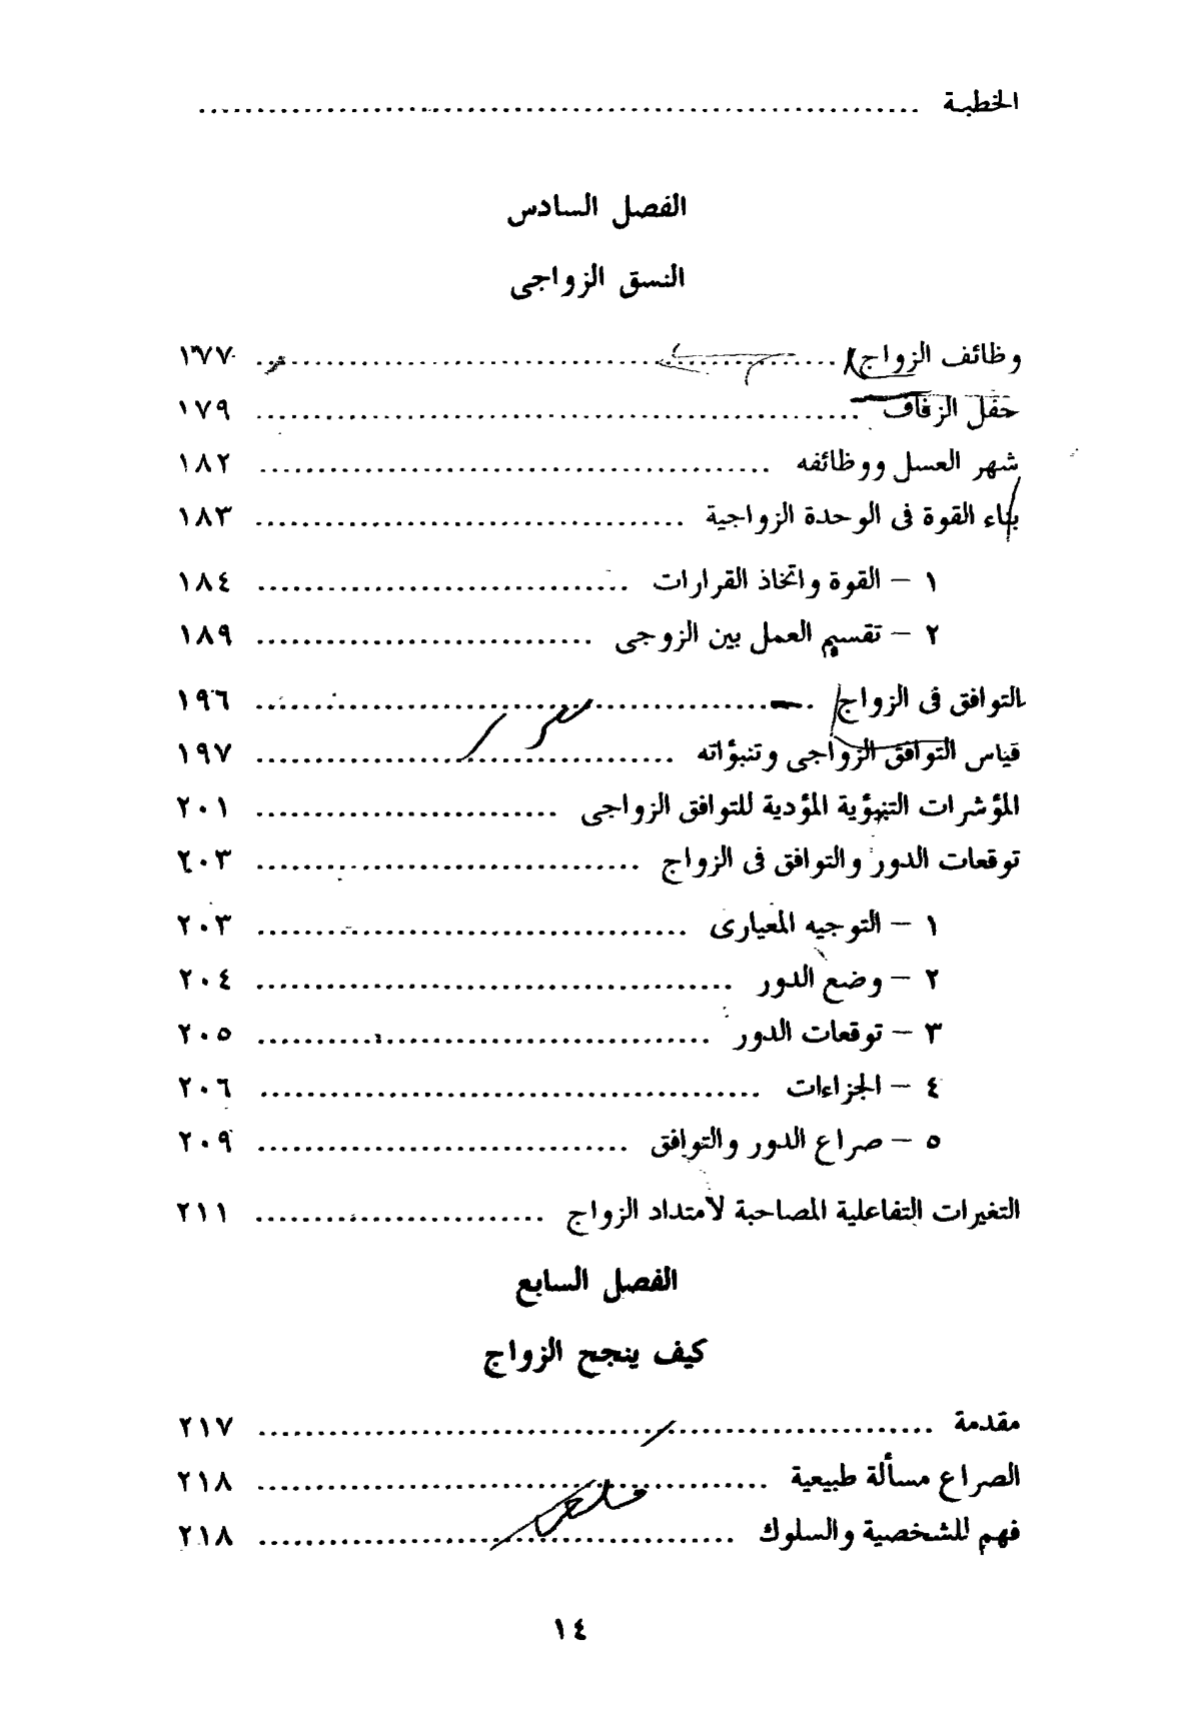 الخطبة ................................................................
الفصل السادس
النسق الزواجى
وظائف الزواج ................................................................ ١٧٧
حفل الزفاف ................................................................ ١٧٩
شهر العسل ووظائفه ................................................................ ١٨٢
بناء القوة فى الوحدة الزواجية ................................................................ ١٨٣
١ – القوة واتخاذ القرارات ................................................................ ١٨٤
٢ – تقسيم العمل بين الزوجى ................................................................ ١٨٩
التوافق فى الزواج ................................................................ ١٩٦
قياس التوافق الزواجى وتنبؤاته ................................................................ ١٩٧
المؤشرات التنبؤية المؤدية للتوافق الزواجى ................................................................ ٢٠١
توقعات الدور والتوافق فى الزواج ................................................................ ٢٠٣
١ – التوجيه المعيارى ................................................................ ٢٠٣
٢ – وضع الدور ................................................................ ٢٠٤
٣ – توقعات الدور ................................................................ ٢٠٥
٤ – الجزاءات ................................................................ ٢٠٦
٥ – صراع الدور والتوافق ................................................................ ٢٠٩
التغيرات التفاعلية المصاحبة لامتداد الزواج ................................................................ ٢١١
الفصل السابع
كيف ينجح الزواج
مقدمة ................................................................ ٢١٧
الصراع مسألة طبيعية ................................................................ ٢١٨
فهم للشخصية والسلوك ................................................................ ٢١٨
١٤